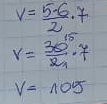 V = 5·6/2 · 7
V = 30/2 15/1 · 7
V = 105